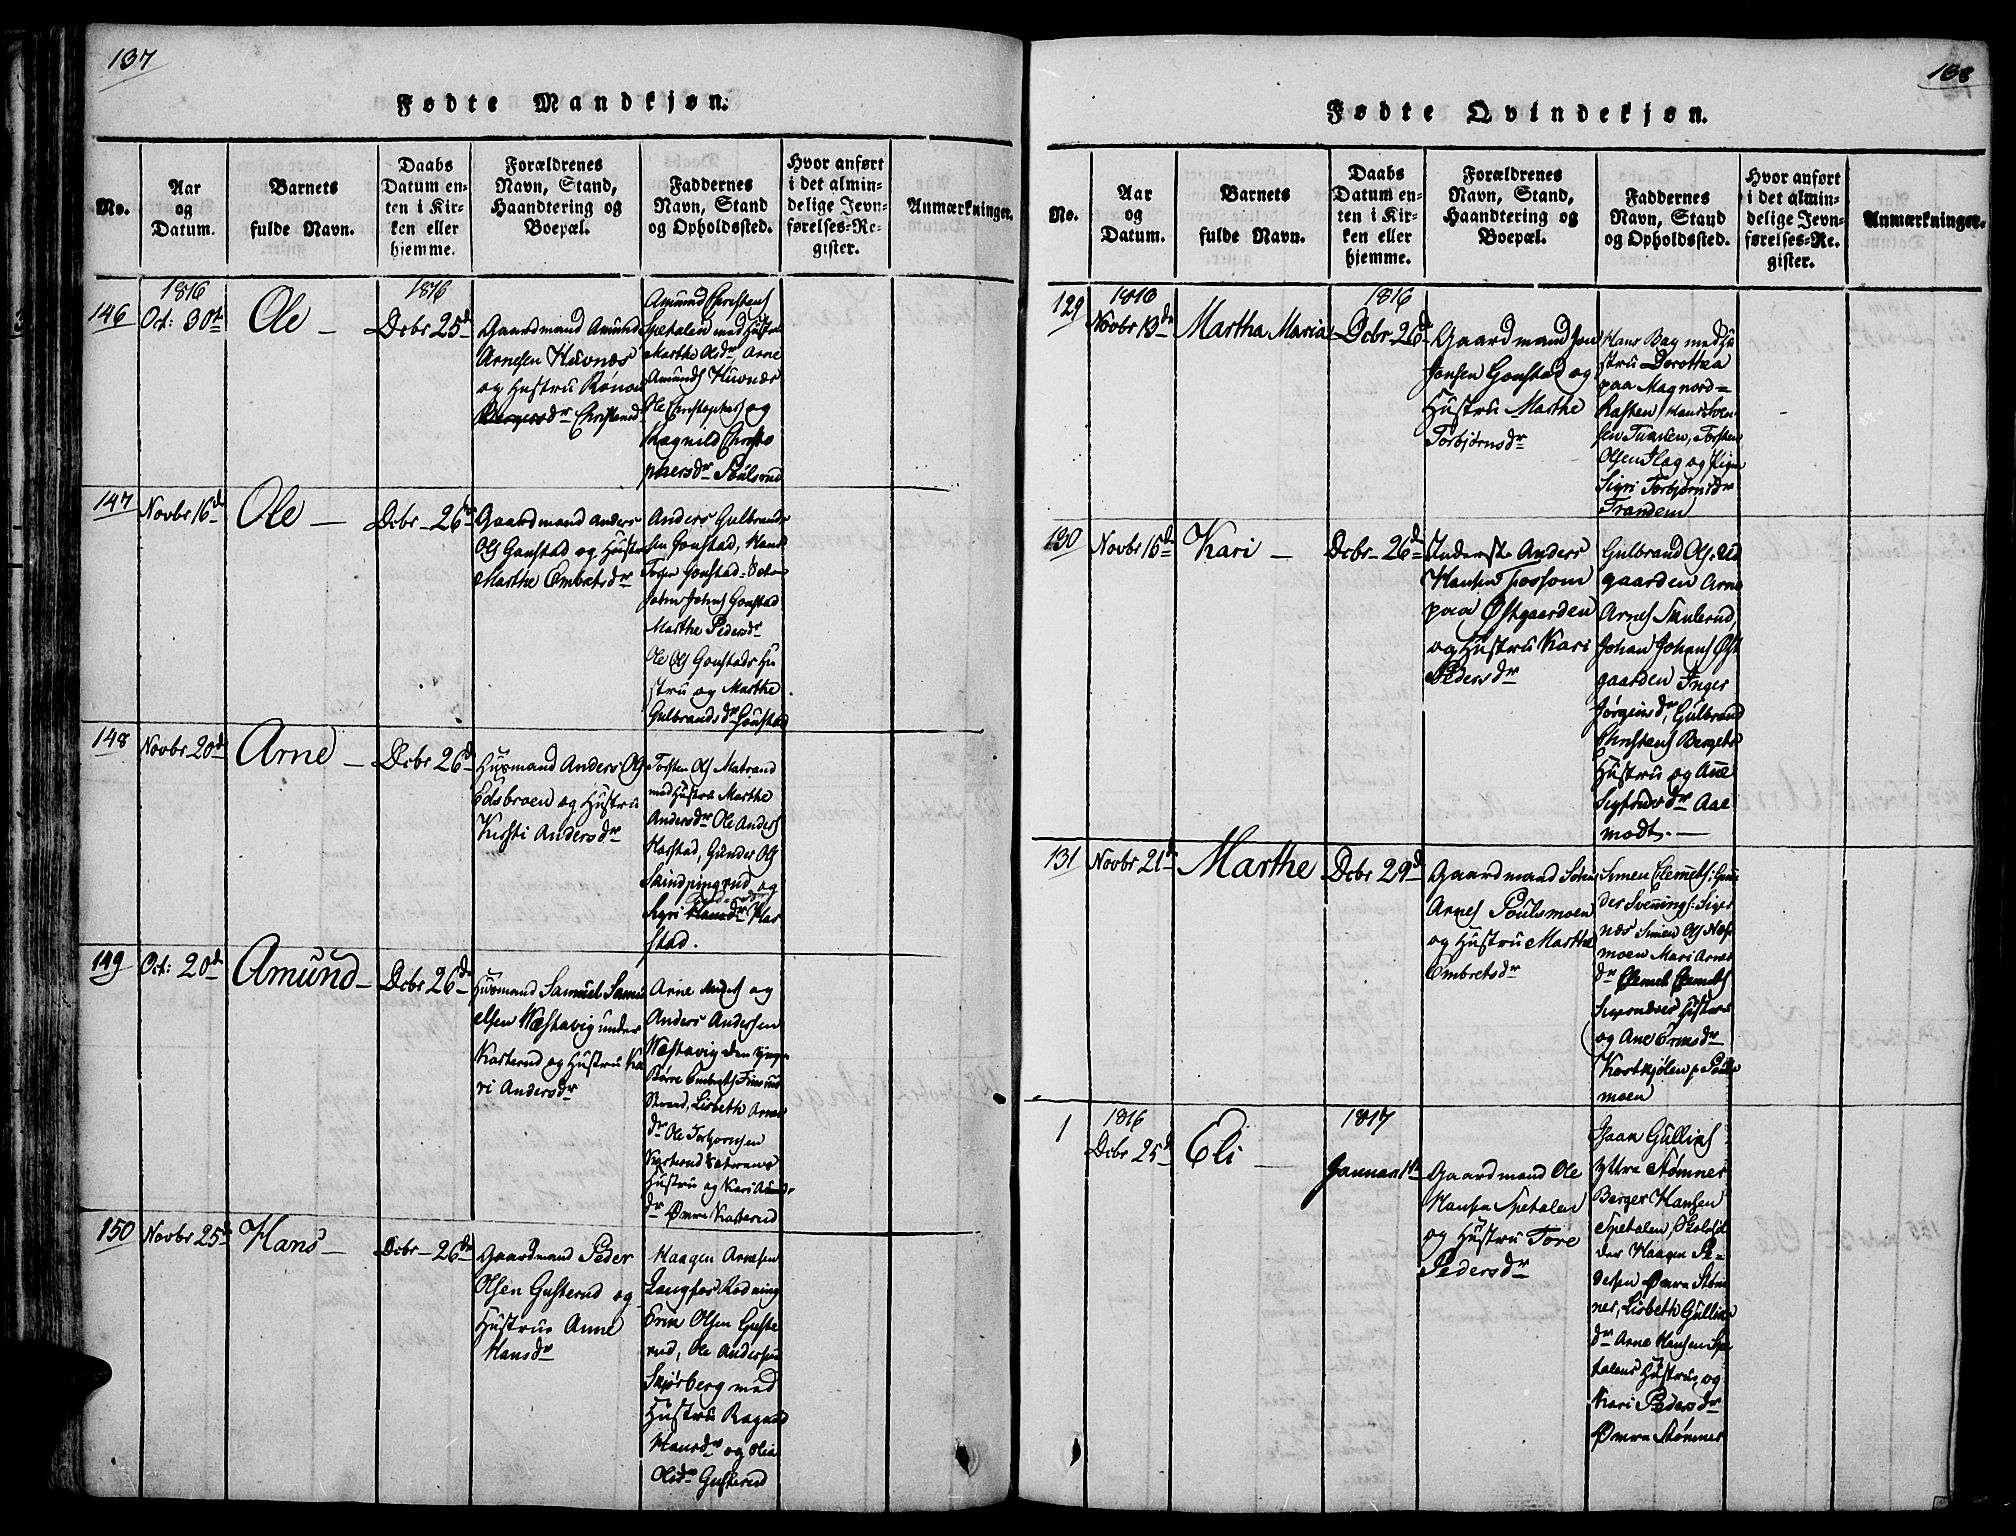 137
Fødte Mandkjøn.
No.
Aar
og
Datum.
Barnets
fulde Navn.
Daabs
Datum en-
ten i Kir-
ken eller
hjemme.
Forældrenes
Navn, Stand,
Haandtering og
Boepæl.
Faddernes
Navn, Stand
og Opholdssted.
Hvor anført
i det almin-
delige Jevn-
førelses-Re-
gister.
Anmærkninger.
146
1816
Oct: 30te
Ole
1816
Dcbr 25d
Gaardmand Amund
Arnesen Huvnæs
og Hustru Rønou
Christensd
Amund Christens
Spetalen med Hustru
Marthe Olsdr Arne
Amunds Huvnæs
Ole Christophers og
Ragnild Christo
phersdr Poulsrud
147
Novbr 16d
Ole
Dcbr 26de
Gaardmand Anders
Ols Gonstad og Hustr
Marthe Embretsdr
Anders Gulbrands
sen Gonstad, Hans
Torsen Gonstad
John Johns Gonstad
Marthe Pedersdr
Ole Ols Gonstads Hu
stru og Marthe
Gulbrandsdr Gonstad
148
Novbr 20d
Arne
Dcbr 26d
Husmand Anders Ols
Edsbroen og Hustru
Kersti Andersdr
Torsten Ols Matrand
med Hustru Marthe
Andersdr Ole Anders
Harstad, Gunder Ols
Skindpingrud og
Sigri Har
stad.
149
Oct: 20d
Amund
Dcbr 26de
Husmand Samuel Samu
elsen Wæstavig under
Kasterud og Hustru Ka
ri Andersdr
Arne Anders og
Anders Andersen
Wæstavig den Yngre
Børre Embrets
Strand, Lisbeth Arne
dr Ole Torbjørnsen
Kasterud
Hustru og Kari Amunds
dr Øvre Kasterud
150
Novbr 25d
Hans
Dcbr 26de
Gaardmand Peder
Olsen Gusterud og
Hustrue Anne
Hansdr
Haagen Arnesen
Langfos Rødning
Erik Olsen Guste
rud, Ole Andersen
Skjørberg med
Hustru Ragnild
Hansdr og Olia
Olsdr Gusterud
138
Fødte Qvindekjøn.
No.
Aar
og
Datum.
Barnets
fulde Navn.
Daabs
Datum en-
ten i Kir-
ken eller
hjemme.
Forældrenes
Navn, Stand,
Haandtering og
Boepæl.
Faddernes
Navn, Stand
og Opholdssted.
Hvor anført
i det almin-
delige Jevn-
førelses-Re-
gister.
Anmærkninger.
129
1816
Novbr 13de
Martha Maria
1816
Dcbr 26d
Gaardmand Jon
Jonsen Gonstad og
Hustru Marthe
Torbjørnsdr
Hans Bag med Hu
stru Dorothea
paa Magnord-
Hasten, Hans Sven
sen Tranden, Torsten
Olsen Flag og Pigen
Sigri Torbjørnsdr
Trandem
130
Novbr 16d
Kari
Dcbr 26d
Anders
Hansen Fossom
paa Østgaarden
og Hustru Kari
Pedersdr
Gulbrand Ols
gaarden Arne
Arnes Skulerud,
Johan Johans Øst
gaarden Inger
Jørgensdr, Gulbrand
Christens Bergets
Hustru og Ane
Sigfredsdr Aae
modt.
131
Novbr 21d
Marthe
Dcbr 29d
Gaardmand Søren
Arnes Poulsmoen
og Hustru Marthe
Embretsdr
Simen Clemets, Gun
der Svenings: Siger
næs Simen Ols Næs
moen Mari Arnes
dr Clemet Clemets
Sigernæses Hustru
og Ane Ermesdr
Kortkjølen p Pouls
moen
1
1816
Dcbr 25d
Eli
1817
Januari 1te
Gaardmand Ole
Hansen Spetalen
og Hustru Tore
Pedersdr
Isaan Gulliks
Yttre Stømner
Berger Hansen
Spetalen, Skolehol
der Haagen Pe-
dersen Øvre Støm
ner, Lisbeth Gulliks
dr Arne Hansen Spe
talens Hustru, og
Kari Pedersdr
Øvre Stømner